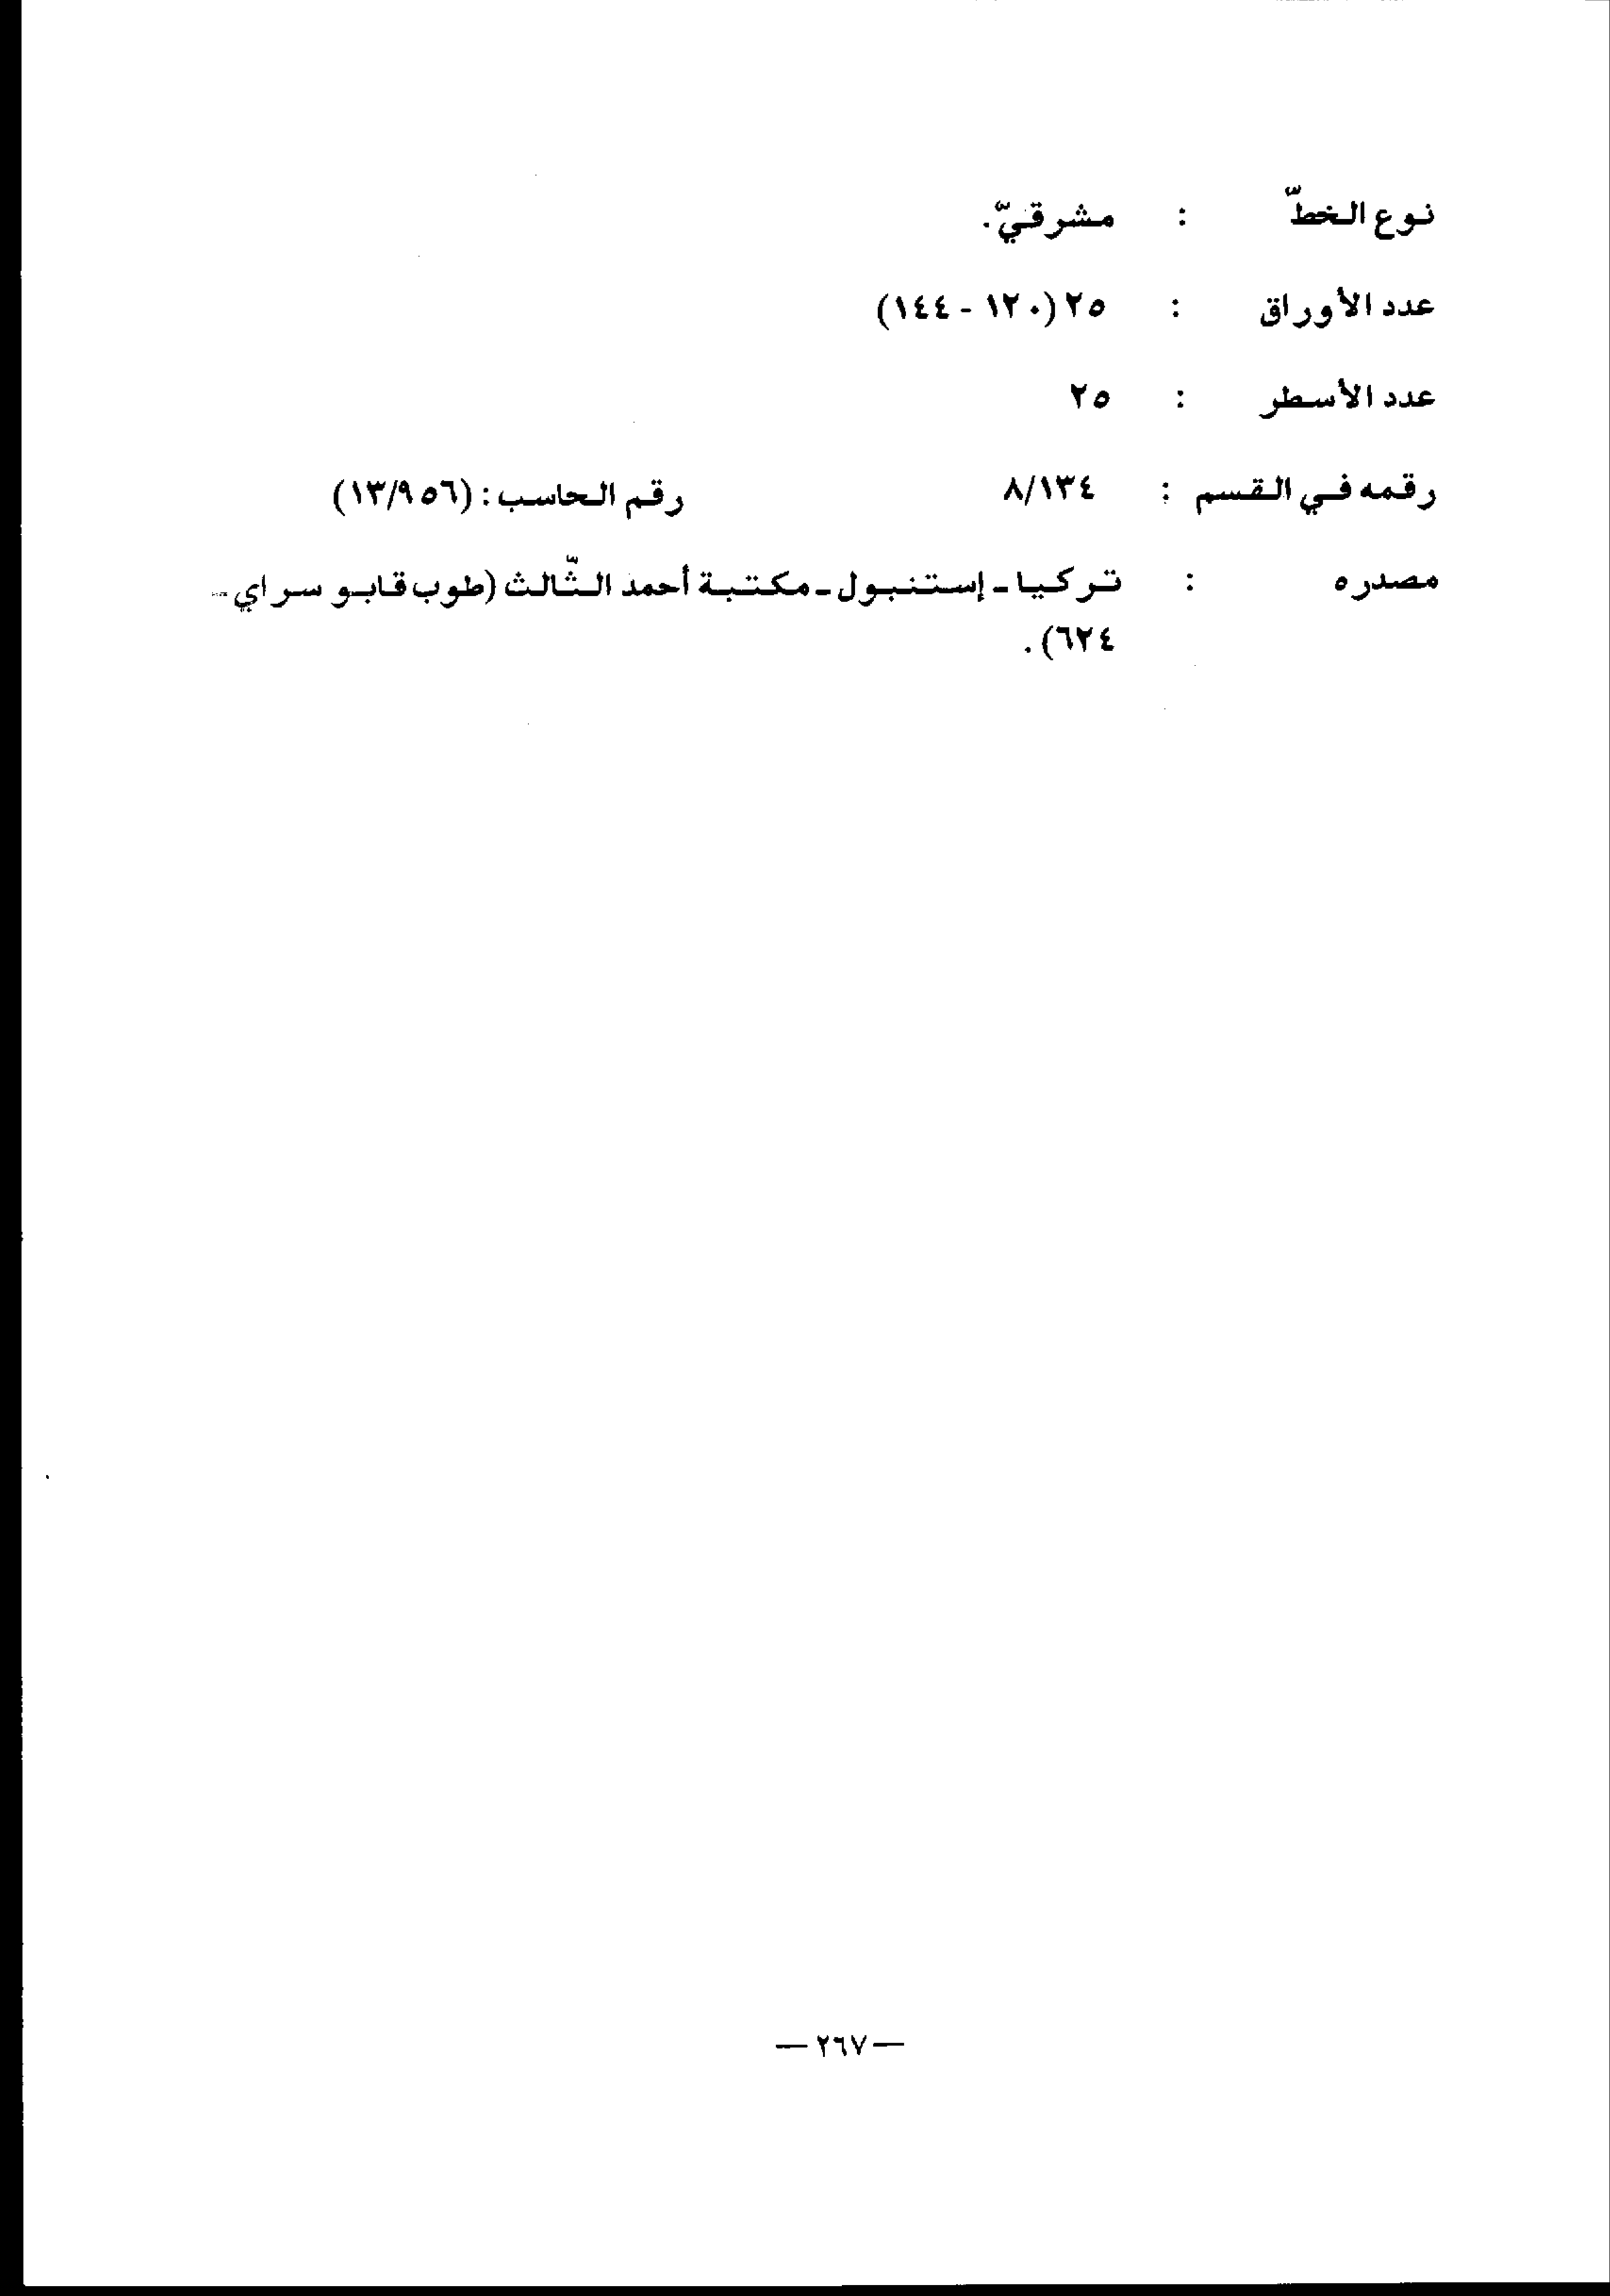 نوع الخطّ : مشرقيّ.
عدد الأوراق : ٢٥ (١٢٠ - ١٤٤)
عدد الأسطر : ٢٥
رقمه في القسم : ٨/١٣٤ رقم الحاسب : (١٣/٩٥٦)
مصدره : تركيا ـ إستنبول ـ مكتبة أحمد الثّالث (طوب قابو سراي ـ
٦٢٤) .
— ٢٦٧ —